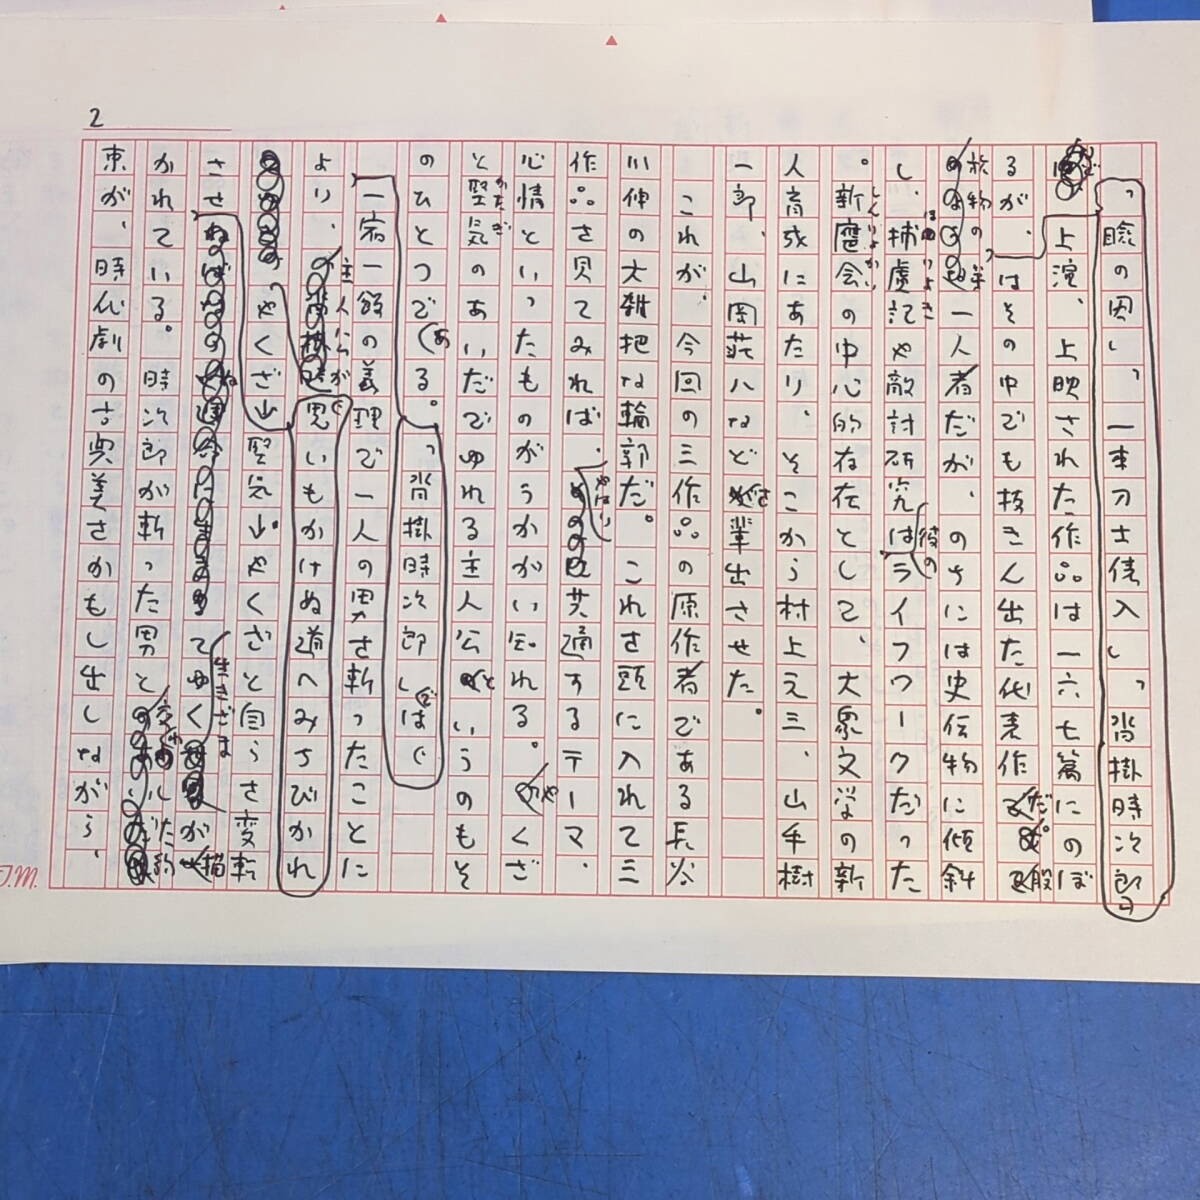 2
「瞼の母」、「一本刀土俵入」、「沓掛時次郎」
など上演、上映された作品は一六七篇にのぼ
るが、はその中でも抜きん出た代表作だ。一般
股旅物の
一人者だが、のちには史伝物に傾斜
し、捕虜記や敵討研究は彼のライフワークだった
ほりょき
。新鷹会の中心的存在として、大衆文学の新
しんようかい
人育成にあたり、そこから村上元三、山手樹
一郎、山岡荘八などを輩出させた。
これが、今回の三作品の原作者である長谷
川伸の大雑把な輪郭だ。これを頭に入れて三
作品を見てみれば、やはり共通するテーマ、
心情といったものがうかがい知れる。やくざ
と堅気のあいだでゆれる主人公というのもそ
かたぎ
のひとつである。「沓掛時次郎」では
一宿一飯の義理で一人の男を斬ったことに
より、主人公が思いもかけぬ道へみちびかれ
やくざ→堅気→やくざと自らを変転
させてゆく生きざまが描
かれている。時次郎が斬った男と交わした約
束が、時代劇の古典美をかもし出しながら、
J.M.